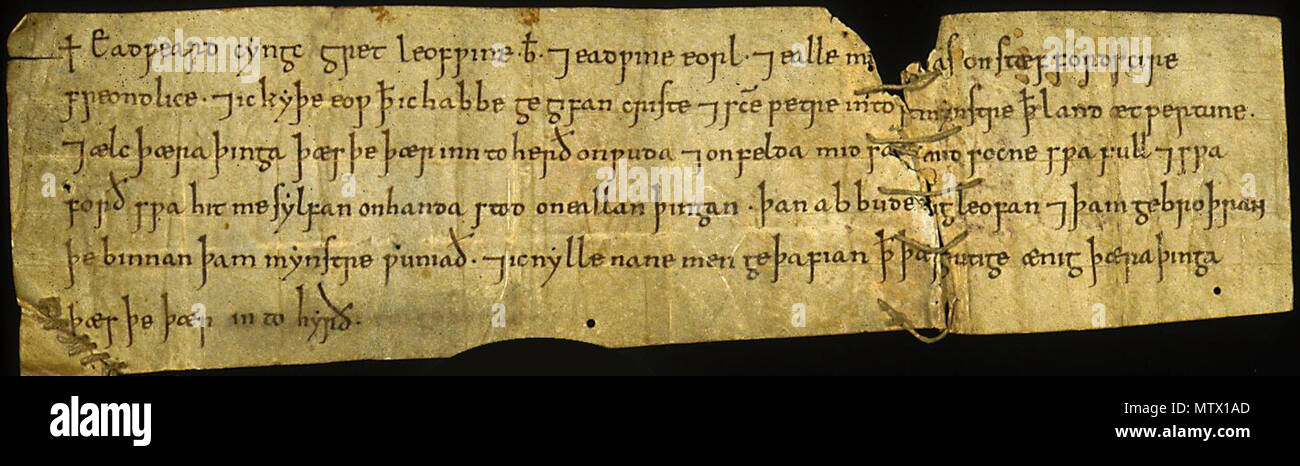 + Eadƿeard cyngc gret leofƿine ꝥ b̄. ⁊ eadƿine eorl. ⁊ ealle on stæffordscire
freondlice. ⁊ ic kyþe eoƿ ꝥ ic habbe gegifan criste ⁊ sc̄e petre into mynstre ꝥ land æt pertune.
⁊ ælc þæra þinga þæs þe þær inn to herð on ƿuda ⁊ on felda mid and socne sƿa full ⁊ sƿa
forð sƿa hit me sylfan on handa stod on eallan þingan. þan abbude leofan ⁊ þam gebroþran
þe binnan þam mynstre ƿuniað. ⁊ ic nylle nane men geþafian ꝥ utige ænig þæra þinga
þæs þe þær in to hyrð.
alamy
Image ID: MTX1AD
www.alamy.com